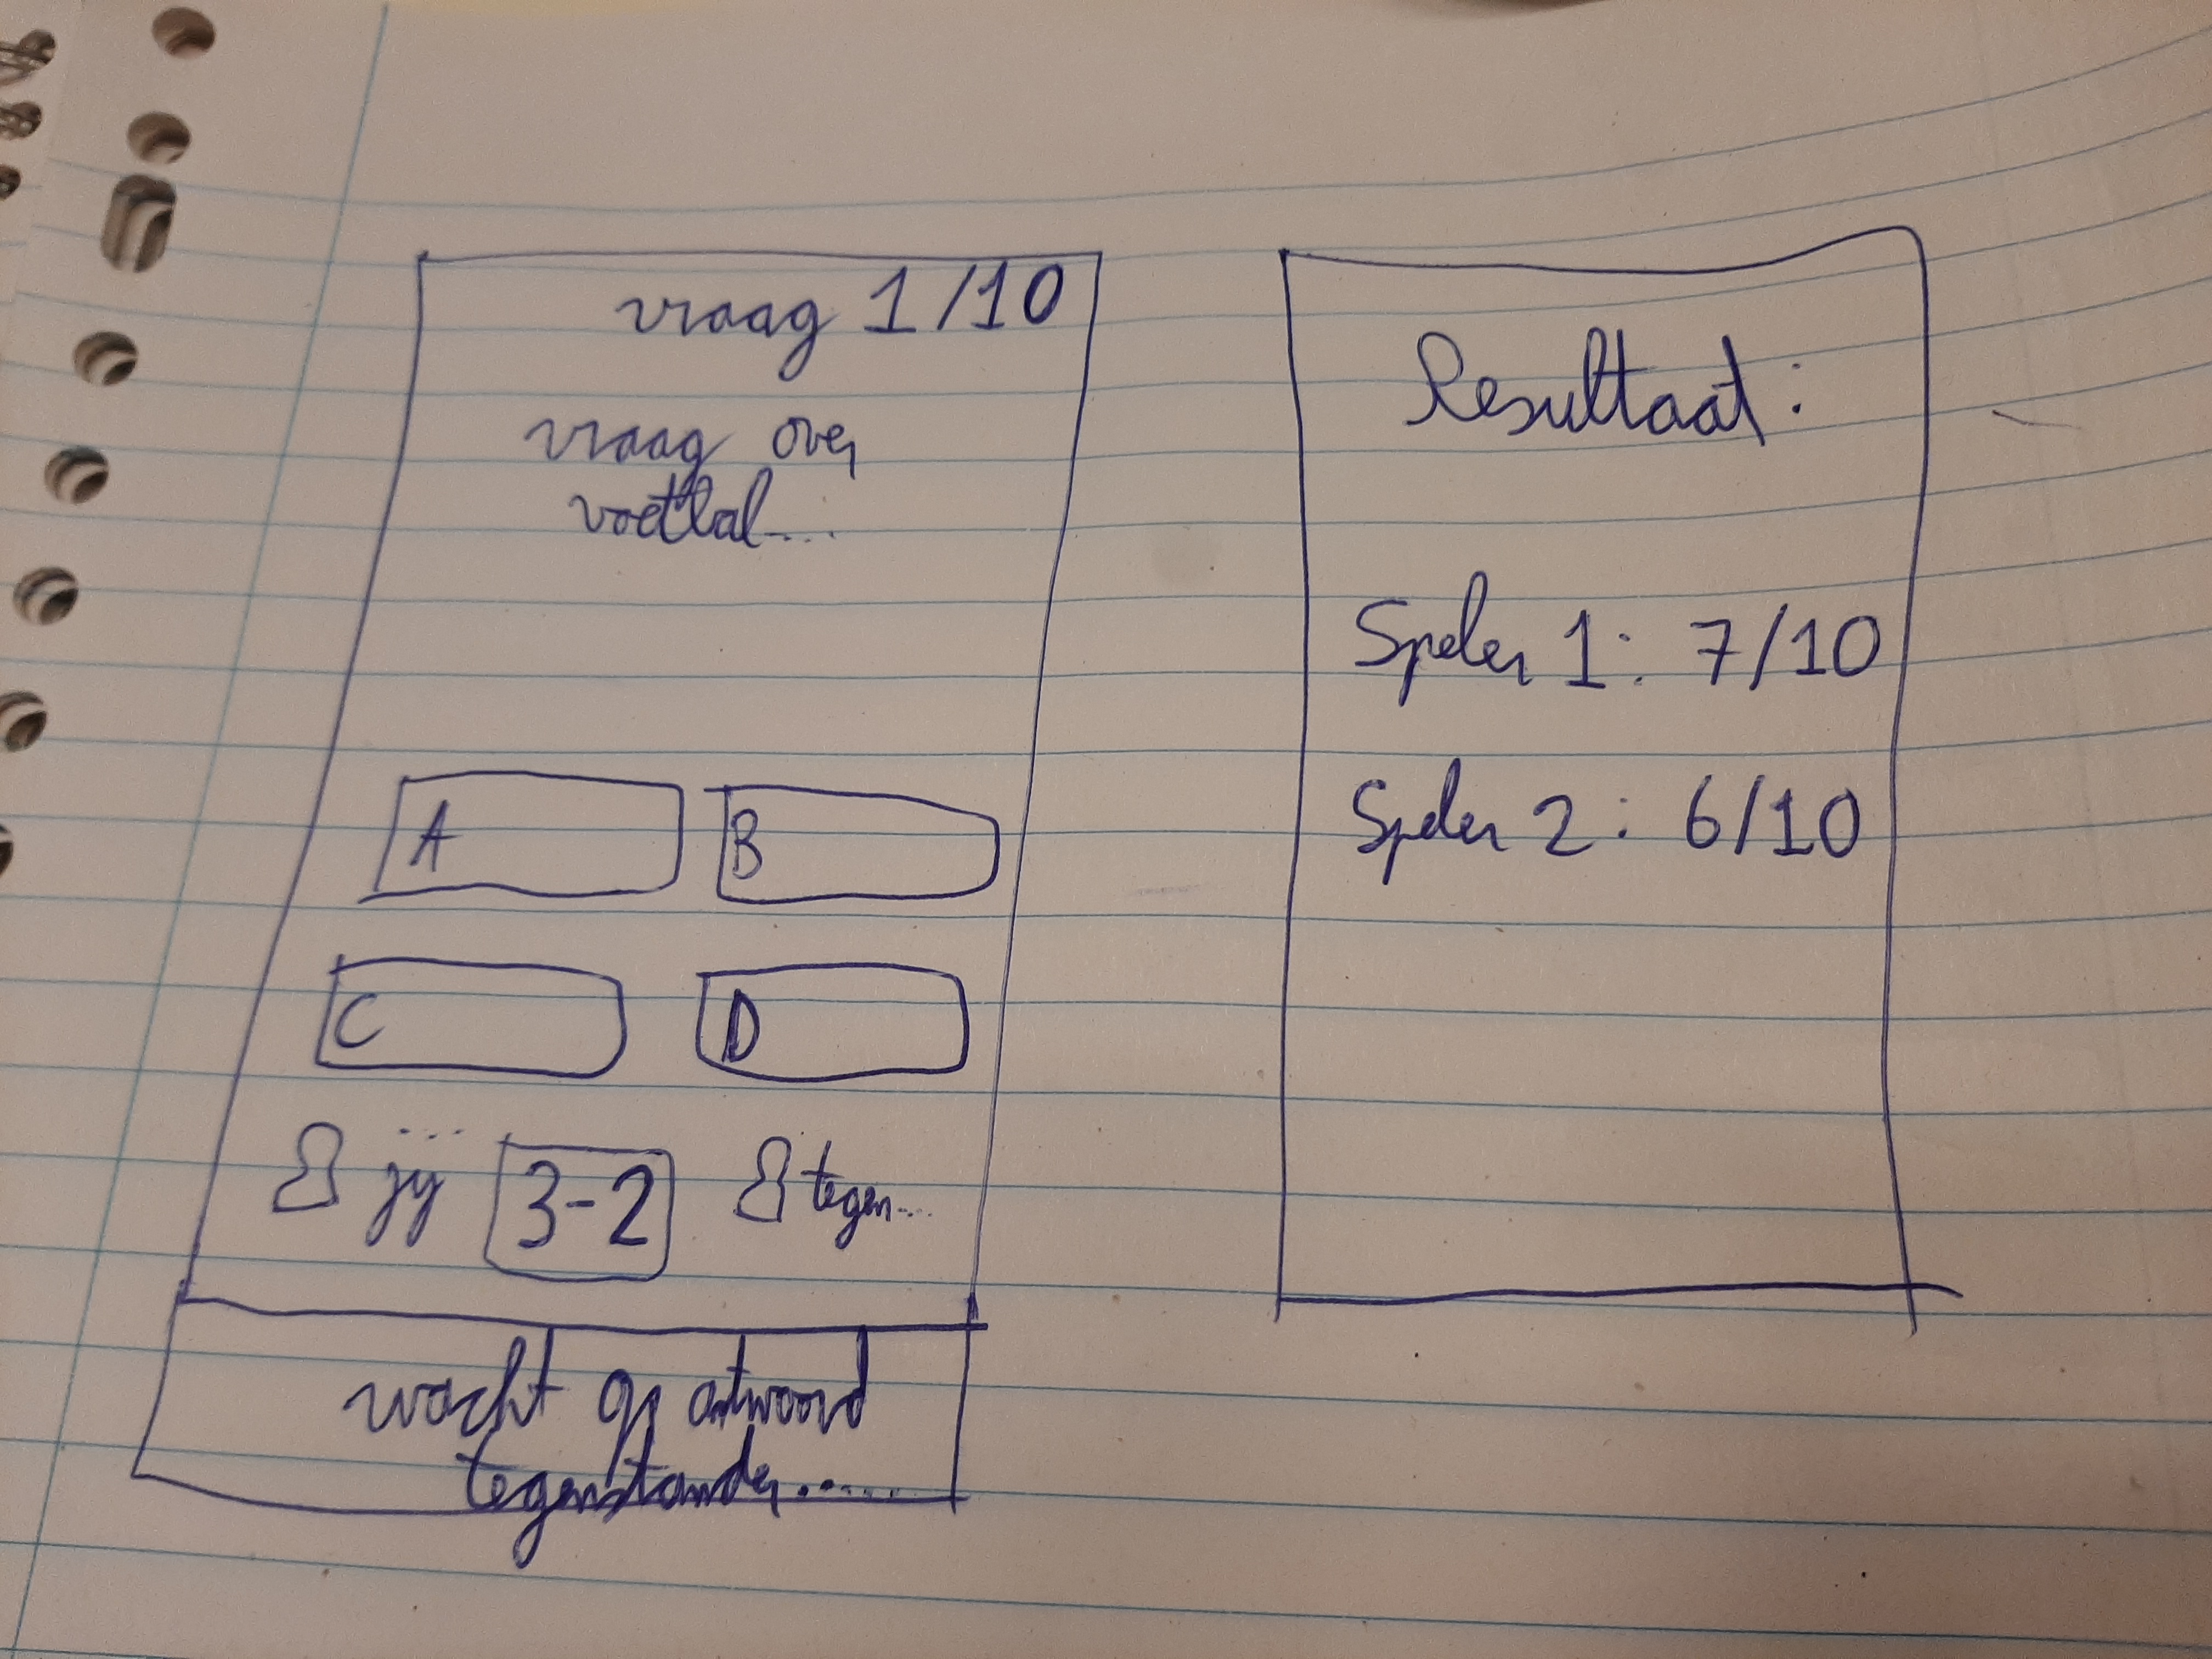 vraag 1/10
vraag over
voetbal....
A
B
C
D
jij...
3-2
tegen....
wacht op antwoord
tegenstander.....
Resultaat:
Speler 1: 7/10
Speler 2: 6/10